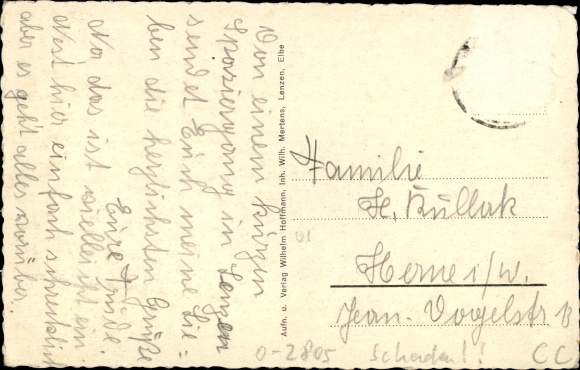 Von einem kurzen
Spaziergang in Lenzen
sendet Euch meine Lie=
ben die herzlichsten Grüße
Eure Trude.
Na das ist vielleicht ein
Nest hier einfach schrecklich
aber es geht alles vorüber.
Aufn. u. Verlag Wilhelm Hoffmann, Inh. Wilh. Mertens, Lenzen, Elbe
Familie
H. Kullak
Herne i/W.
Jean-Vogelstr
0-2805 Schaden!! CC